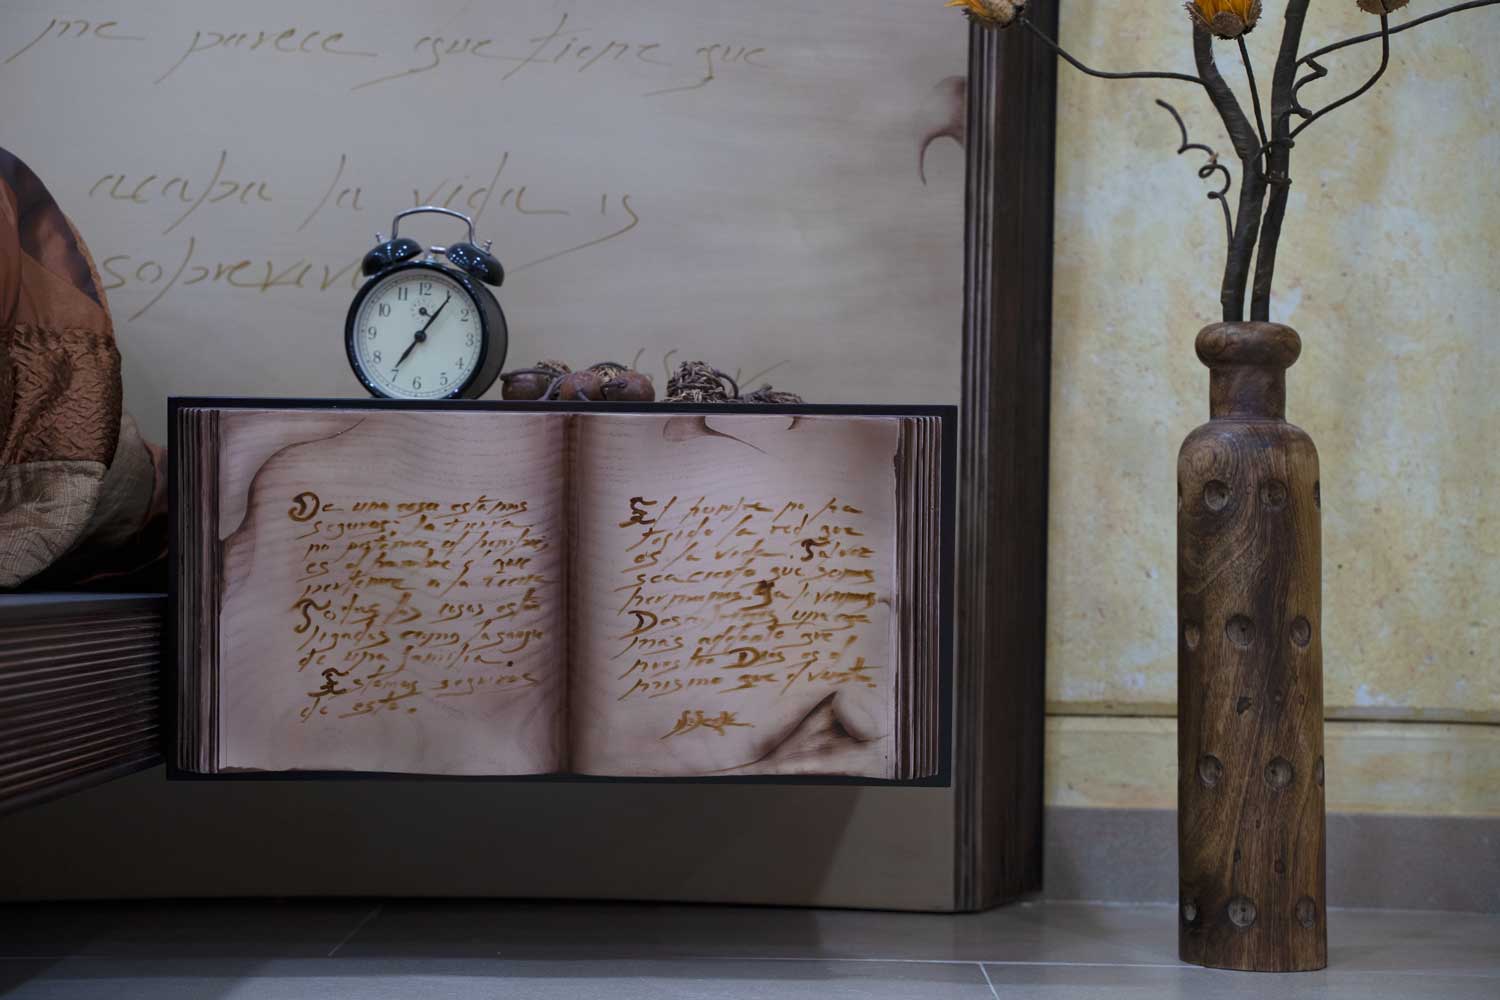 me parece que tiene que
acaba la vida
12
11
10
9
8
7
6
5
4
3
2
De una cosa estamos
seguros: la tierra
no pertenece al hombre;
es el hombre el que
pertenece a la tierra
Todas las cosas están
ligadas como la sangre
de una familia.
Estamos seguros
de esto.
El hombre no ha
tejido la red que
es la vida. Tal vez
sea cierto que somos
hermanos. Ya
una cosa
más adelante que
nuestro Dios es el
mismo que el vuestro.